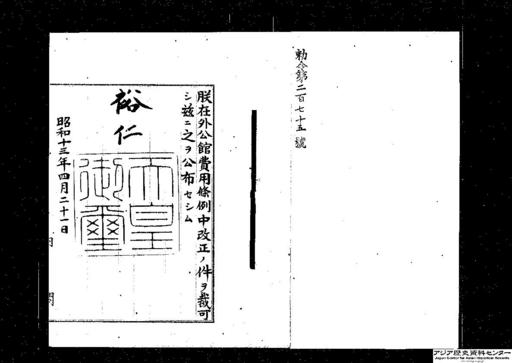 勅令第二百七十五號
朕在外公館費用條例中改正ノ件ヲ裁可
シ茲ニ之ヲ公布セシム
裕仁
天皇
御璽
昭和十三年四月二十一日
アジア歴史資料センター
Japan Center for Asian Historical Records